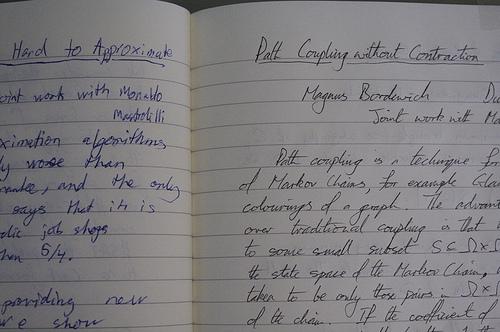 Hard to Approximate
joint work with Monaldo
Mastrolilli
ximation algorithms
ly worse than
rantee, and the only
says that it is
dic job shops
than 5/4.
providing new
we show
Path Coupling without Contraction
Magnus Bordewich
Joint work with
Path coupling is a technique for
of Markov Chains, for example
colourings of a graph. The
over traditional coupling is that
to some small subset S ⊆ Ω×
the state space of the Markov Chain,
taken to be only those pairs in Ω×
of the chain. If the coefficient of